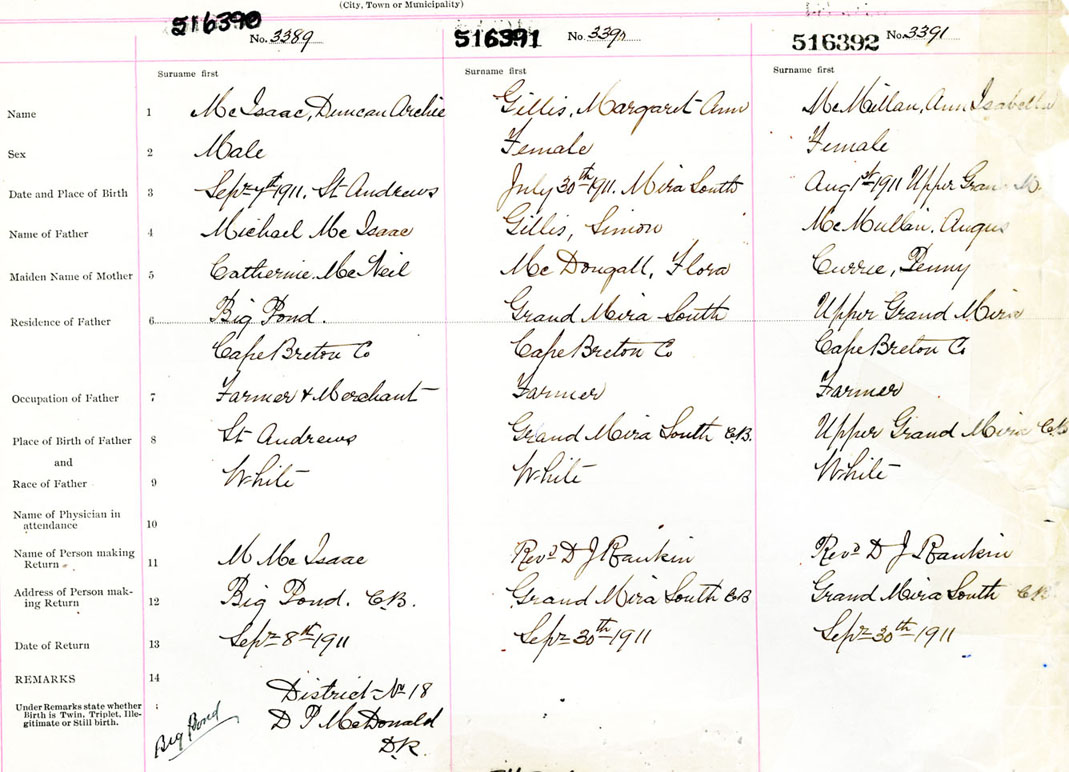 (City, Town or Municipality)
516390 No. 3389 516391 No. 339 516392 No. 3391
Surname first Surname first Surname first
Name 1 McIsaac, Duncan Archie Gillis, Margaret Ann McMullan, Ann Isabella
Sex 2 Male Female Female
Date and Place of Birth 3 Sept 7th 1911. St Andrews July 30th 1911. Mira South Aug 1st 1911 Upper Gran
Name of Father 4 Michael McIsaac Gillis, Simion McMullan, Angus
Maiden Name of Mother 5 Catherine McNeil McDougall, Flora Currie, Penny
Residence of Father 6 Big Pond. Grand Mira South Upper Grand Mira
Cape Breton Co Cape Breton Co Cape Breton Co
Occupation of Father 7 Farmer & Merchant Farmer Farmer
Place of Birth of Father 8 St Andrews Grand Mira South C.B. Upper Grand Mira C.B
and
Race of Father 9 White White White
Name of Physician in
attendance 10
Name of Person making
Return 11 M McIsaac Revd D J Rankin Revd D J Rankin
Address of Person mak-
ing Return 12 Big Pond. C.B. Grand Mira South C.B Grand Mira South C.B.
Date of Return 13 Sept 8th 1911 Sept 30th 1911 Sept 30th 1911
REMARKS 14
District No 18
Under Remarks state whether
Birth is Twin, Triplet, Ille-
gitimate or Still birth.
Big Pond
D P McDonald
D.R.